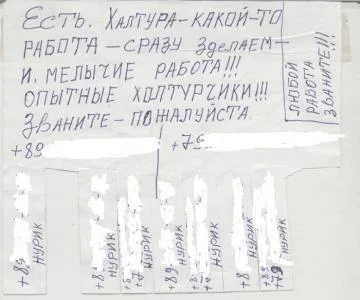 Есть. Халтура - какой-то
работа - сразу зделаем -
и. мелычие работа!!!
опытные холтурчики!!!
Званите - пожалуйста.
любой
работа
званите!!!
+89
+79
+89
Нурик
+89
Нурик
+89
+7
Нурик
+89
Нурик
+89
Нурик
+8
Нурик
+89
+79
Нурик